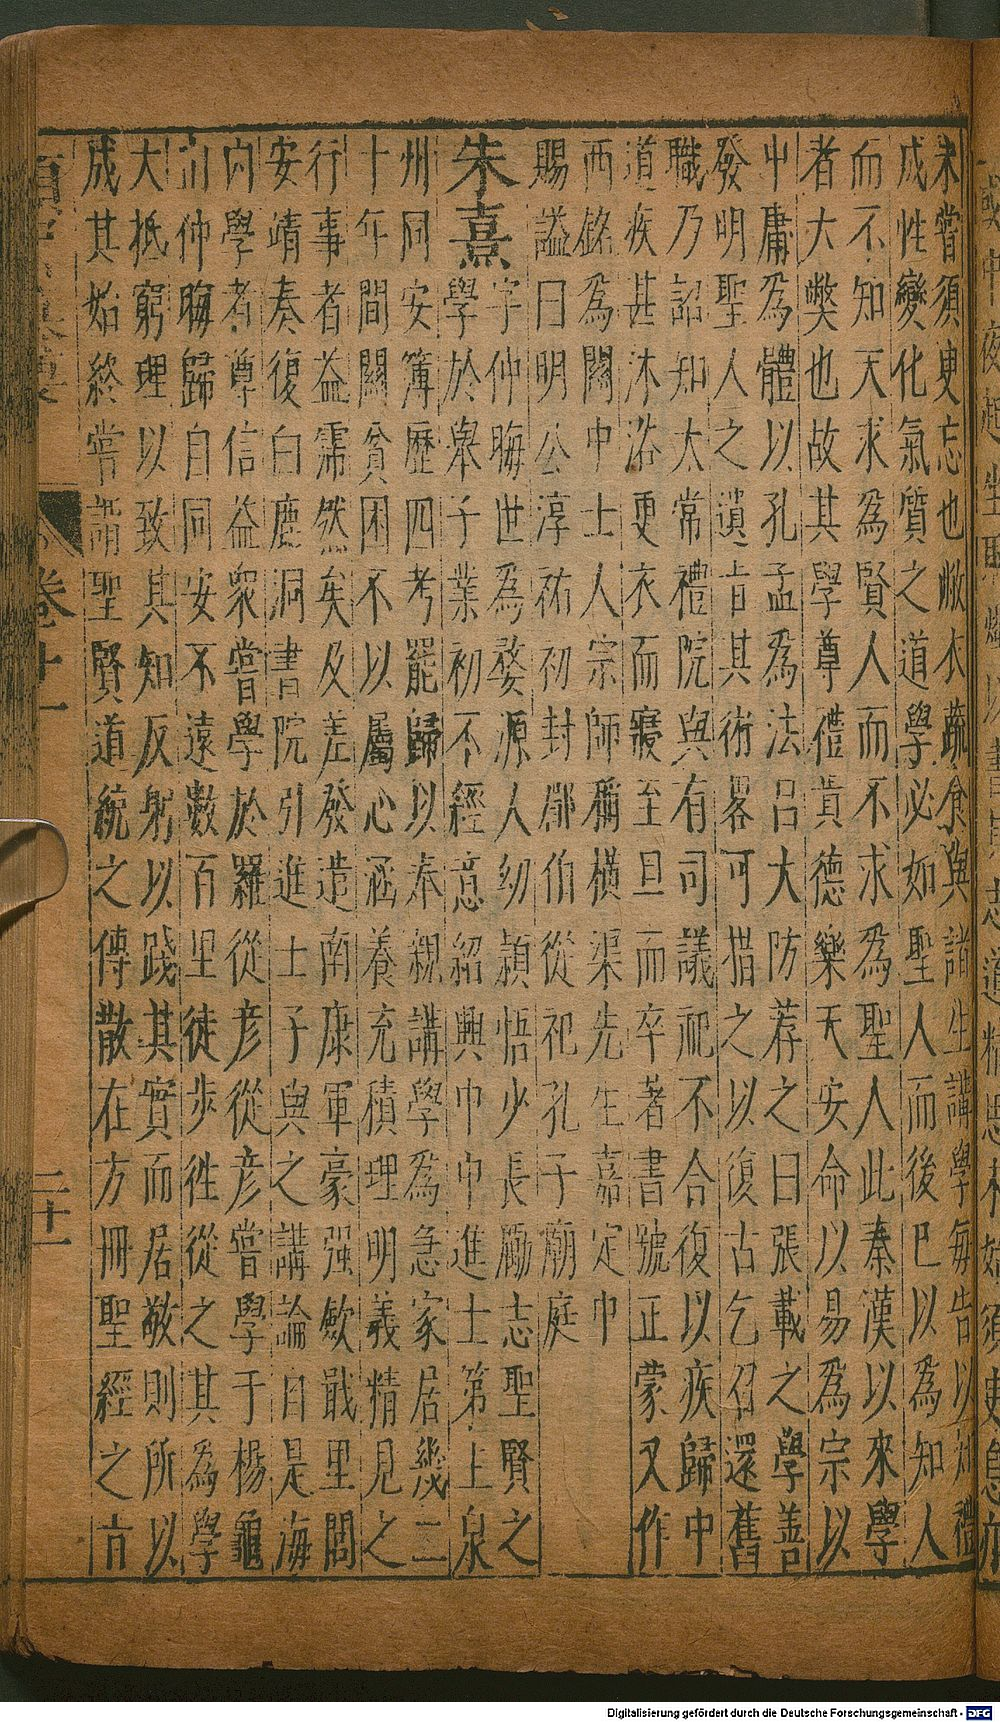 未嘗須臾忘也敝衣蔬食與諸生講學每告以知禮
成性變化氣質之道學必如聖人而後巳以為知人
而不知天求為賢人而不求為聖人此秦漢以來學
者大獘也故其學尊禮貴德樂天安命以易為宗以
中庸為體以孔孟為法呂大防荐之曰張載之學善
發明聖人之遺旨其術畧可措之以復古乞召還舊
職乃詔知太常禮院與有司議祀不合復以疾歸中
道疾甚沐浴更衣而寢至旦而卒著書號正蒙又作
西銘為關中士人宗師稱橫渠先生嘉定中
賜謚曰明公淳祐初封郿伯從祀孔子廟庭
朱熹字仲晦世為婺源人幼頴悟少長勵志聖賢之
學於舉子業初不經意紹興中中進士第上泉
州同安簿歷四考罷歸以奉親講學為急家居幾二
十年間關貧困不以屬心涵養充積理明義精見之
行事者益霈然矣及差發遣南康軍豪强歛戢里閭
安靖奏復白鹿洞書院引進士子與之講論曰是海
內學者尊信益衆嘗學於羅從彥從彥嘗學于楊龜
山仲晦歸自同安不遠數百里徒步徃從之其為學
大抵窮理以致其知反躬以踐其實而居敬則所以
成其始終嘗謂聖賢道統之傳散在方冊聖經之㫖
卷十一
二十一
Digitalisierung gefördert durch die Deutsche Forschungsgemeinschaft - DFG